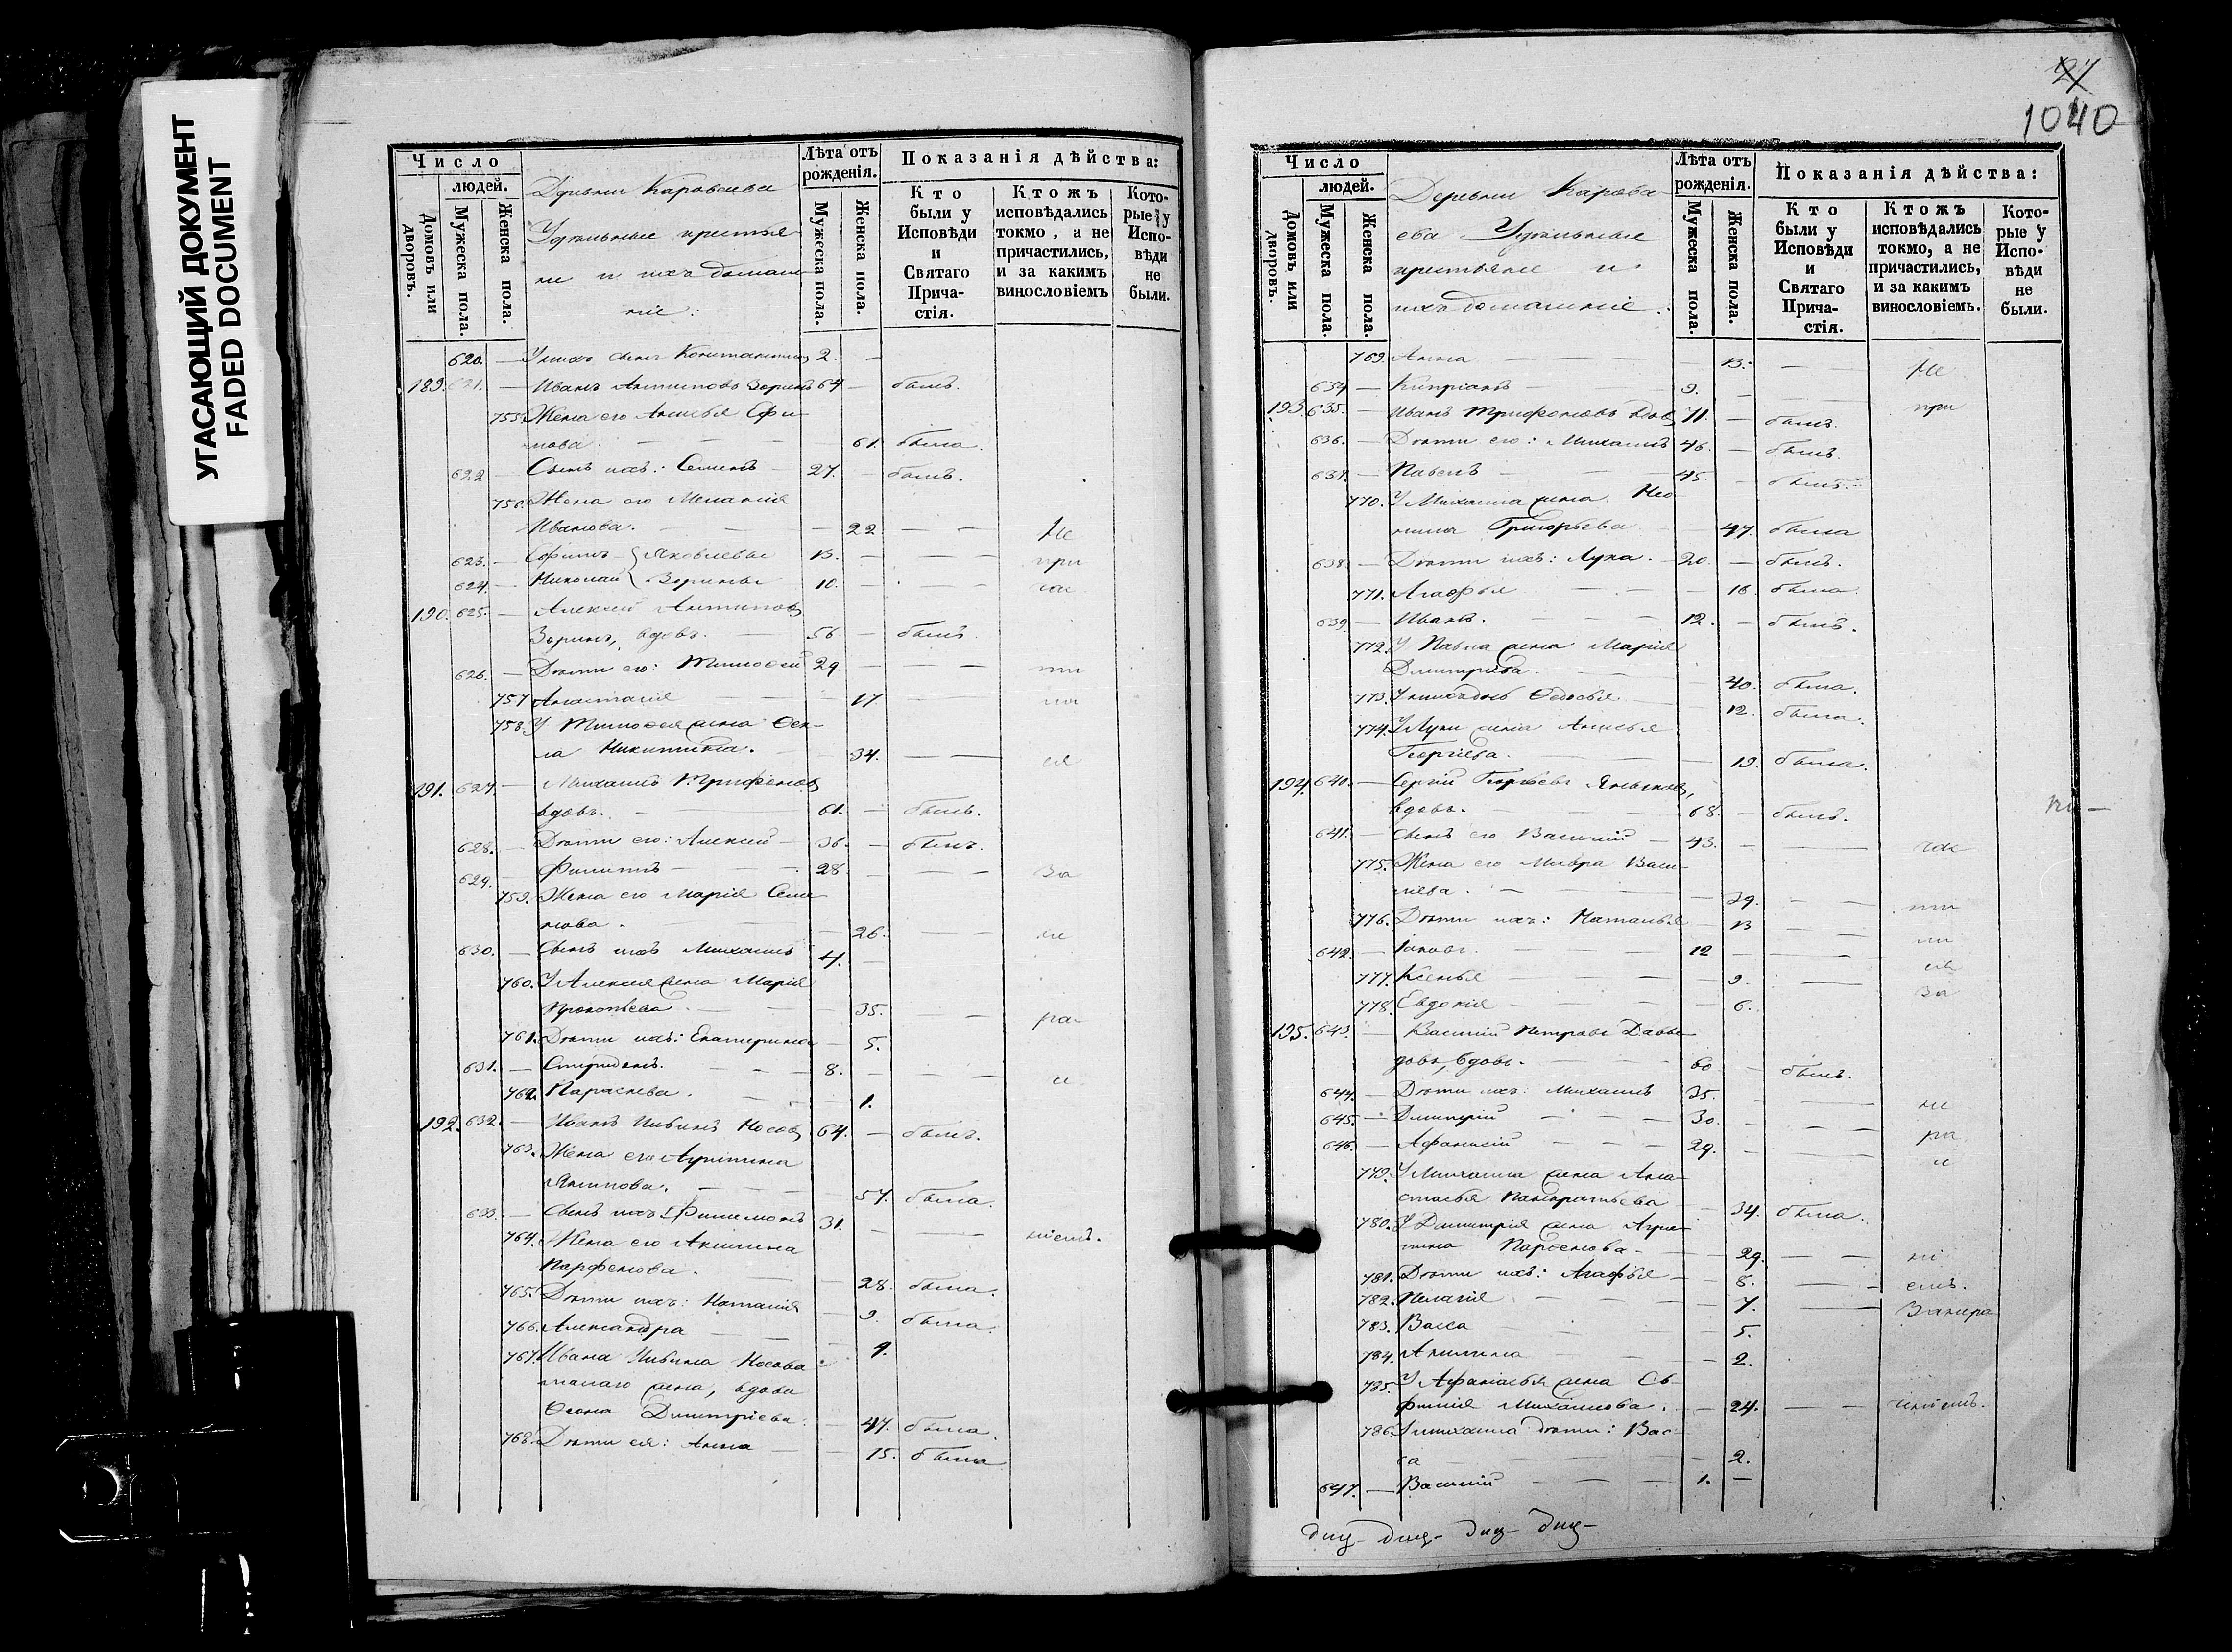 УГАСАЮЩИЙ ДОКУМЕНТ
FADED DOCUMENT
Число
людей.
Домовъ или дворовъ.
Мужеска пола.
Женска пола.
Деревни Караваева
Удѣльные крестья-
не и ихъ домаш-
ніе:
Лѣта отъ рожденія.
Мужеска пола.
Женска пола.
Показанія дѣйства:
Кто были у Исповѣди и Святаго Прича-стія.
Ктожъ исповѣдались токмо, а не причастились, и за какимъ винословіемъ
Кото-рые у Испо-вѣди не были.
620. — сынъ Константинъ 2. —
189. 621. — Иванъ Антиповъ Зоринъ 64 — былъ.
755. Жена его Анисья Ефи-
мова. — 61. была
622 — Сынъ ихъ: Семенъ — 27. — былъ.
756. Жена его Меланія
Иванова. — 22 — Не
623. — Ефимъ Яковлевы 13. — при
624. — Николай Зорины 10. — ча
190. 625. — Алексѣй Антиповъ
Зоринъ, вдовъ. 56 — былъ.
626. — Дѣти его: Тимофей 29 — сти
757 Анастасія — 17 —
758. У Тимофея жена Фек-
ла Никитина. — 34. — ся
191. 627. — Михаилъ Трифоновъ
вдовъ. — 61. — былъ.
628. — Дѣти его: Алексѣй — 36. — былъ.
629. — Филиппъ — 28 — За
759. Жена его Марія Семе-
нова. — 26. — не
630. — Сынъ ихъ Михаилъ 4. —
760. У Алексѣя жена Марія
Прокопьева. — 35. — ра
761. Дѣти ихъ: Екатерина — 5.
631. — Спиридонъ. — 8. — д
762. Параскева. — 1.
192. 632. — Иванъ Носовъ 64. — былъ.
763. Жена его Агриппина
57. была.
633. — Сынъ ихъ Филимонъ 31. — ніемъ.
764. Жена его Акилина
Парфенова. — 28. была.
765. Дѣти ихъ: Наталія — 9. была.
766. Александра — 4.
767. Ивана Носова
жена, вдова
Дмитріева. — 47. была.
768. Дѣти ея: Анна — 15. была
21
1040
Число
людей.
Домовъ или дворовъ.
Мужеска пола.
Женска пола.
Деревни Карава-
ева Удѣльные
крестьяне и
ихъ домашніе:
Лѣта отъ рожденія.
Мужеска пола.
Женска пола.
Показанія дѣйства:
Кто были у Исповѣди и Святаго Прича-стія.
Ктожъ исповѣдались токмо, а не причастились, и за какимъ винословіемъ.
Кото-рые у Испо-вѣди не были.
769. Анна — 13. — Не
634 — Кипріанъ — 9. — при
193. 635. — Иванъ Трифоновъ вдов 71. — былъ.
636. — Дѣти его: Михаилъ 46. — былъ.
637. — Павелъ — 45. — былъ.
770. У Михаила жена Нео-
нила Григорьева — 47. была
638. — Дѣти ихъ: Лука. — 20. — былъ.
771. Агафья — 16. была.
639. — Иванъ. — 12. — былъ.
772. У Павла жена Марія
Дмитріева. — 40. была.
773. Федосья — 12. была.
774. У Луки жена Анисья
Георгіева. — 19. была.
194. 640. — Сергій Георгіевъ
вдовъ. — 68. — былъ.
641. — Сынъ его Василій — 43. — час
775. Жена его Мавра Васи-
льева. — 39. — ти
776. Дѣти ихъ: Наталья — 13 —
642. — Іаковъ. — 12 —
777. Ксенья — 9. — за
778. Евдокія — 6.
195. 643. — Василій Петровъ Давы-
довъ, вдовъ. — 60 — былъ.
644. — Дѣти ихъ: Михаилъ 35. — не
645. — Дмитрій — 30. — ра
646. — Афанасій — 29. —
779. У Михаила жена Ана-
стасья Панкратьева — 34. была.
780. У Дмитрія жена Агри-
пина Парфенова — 29. — ні
781. Дѣти ихъ: Агафья — 8. — емъ.
782. Пелагія — 7. — За нера
783. Васса — 5.
784. Акилина — 2.
785. У Афанасья жена Ев-
фимія Михайлова. — 24. — дѣніемъ.
786. У Михаила дѣти: Вас-
са — 2.
647. — Василій — 1. —